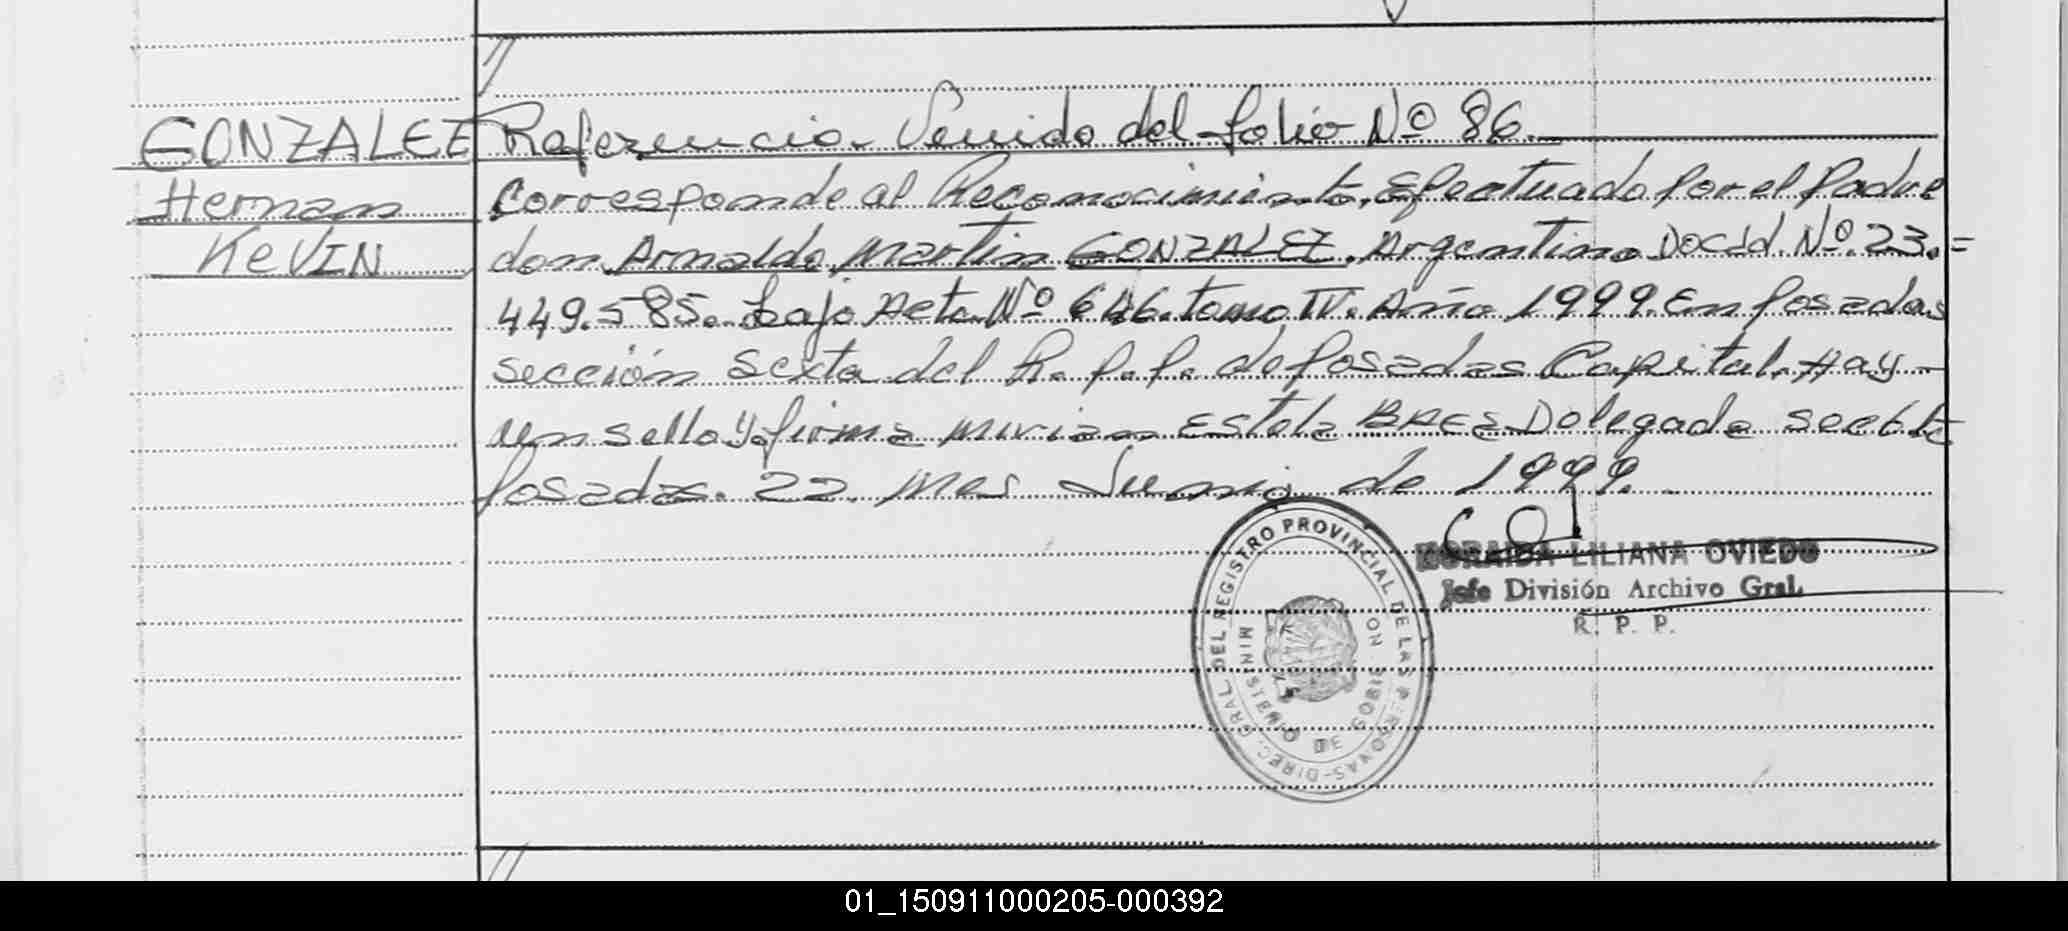 GONZALEZ
Hernan
KEVIN
Referencia. Venido del folio Nº 86.
Corresponde al Reconocimiento, Efectuado por el Padre
don Arnaldo Martin GONZALEZ. Argentino Doc Id. Nº. 23.=
449.585. bajo Acta Nº 646. tomo IV. Año 1999. En Posadas
sección sexta del R. P. P. de Posadas Capital. Hay -
un sello y firma Mirian Estela Delegada
Posadas. 22. Mes Junio de 1999.
DIREC. GRAL. DEL REGISTRO PROVINCIAL DE LAS PERSONAS-
MINISTERIO DE GOBIERNO
LILIANA OVIEDO
Jefe División Archivo Gral.
R. P. P.
01_150911000205-000392